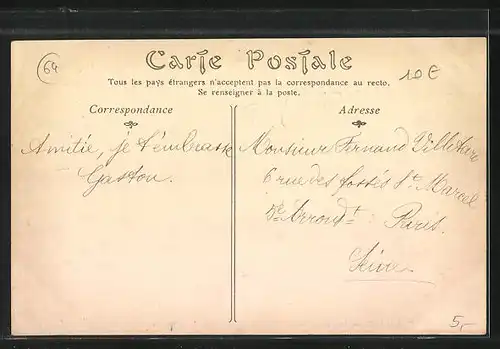 64
Carte Postale
10 E
Tous les pays étrangers n'acceptent pas la correspondance au recto.
Se renseigner à la poste.
Correspondance
Adresse
Amitié, je t'embrasse
Gaston.
Monsieur Fernand Villetard
6 rue des fossés St. Marcel
5e Arrondt. Paris.
Seine
5,-